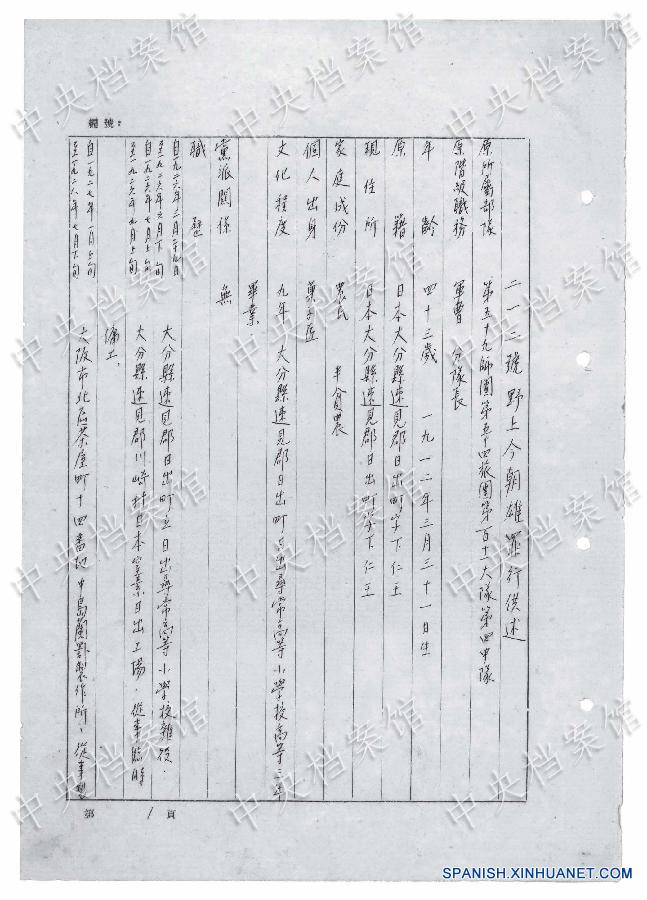 編號：
二一二號 野上今朝雄 罪行供述
原所屬部隊 第五十九師團第五十四旅團第百十一大隊第四中隊
原階級職務 軍曹 分隊長
年齡 四十三歲 一九一二年三月三十一日生
原籍 日本大分縣速見郡日出町字下仁王
現住所 日本大分縣速見郡日出町字下仁王
家庭成份 農民 半貧農
個人出身 菓子匠
文化程度 九年 大分縣速見郡日出町立日出尋常高等小學校高等三年
畢業．
黨派關係 無
職歷
大分縣速見郡日出町立日出尋常高等小學校雜役．
大分縣速見郡川崎村日本窒素日出工場．從事臨時
自一九二七年一月上旬
至一九二八年七月下旬 大阪市北區茶屋町十四番地中島 製作所，從事製
第 1 頁
中央档案馆
SPANISH.XINHUANET.COM